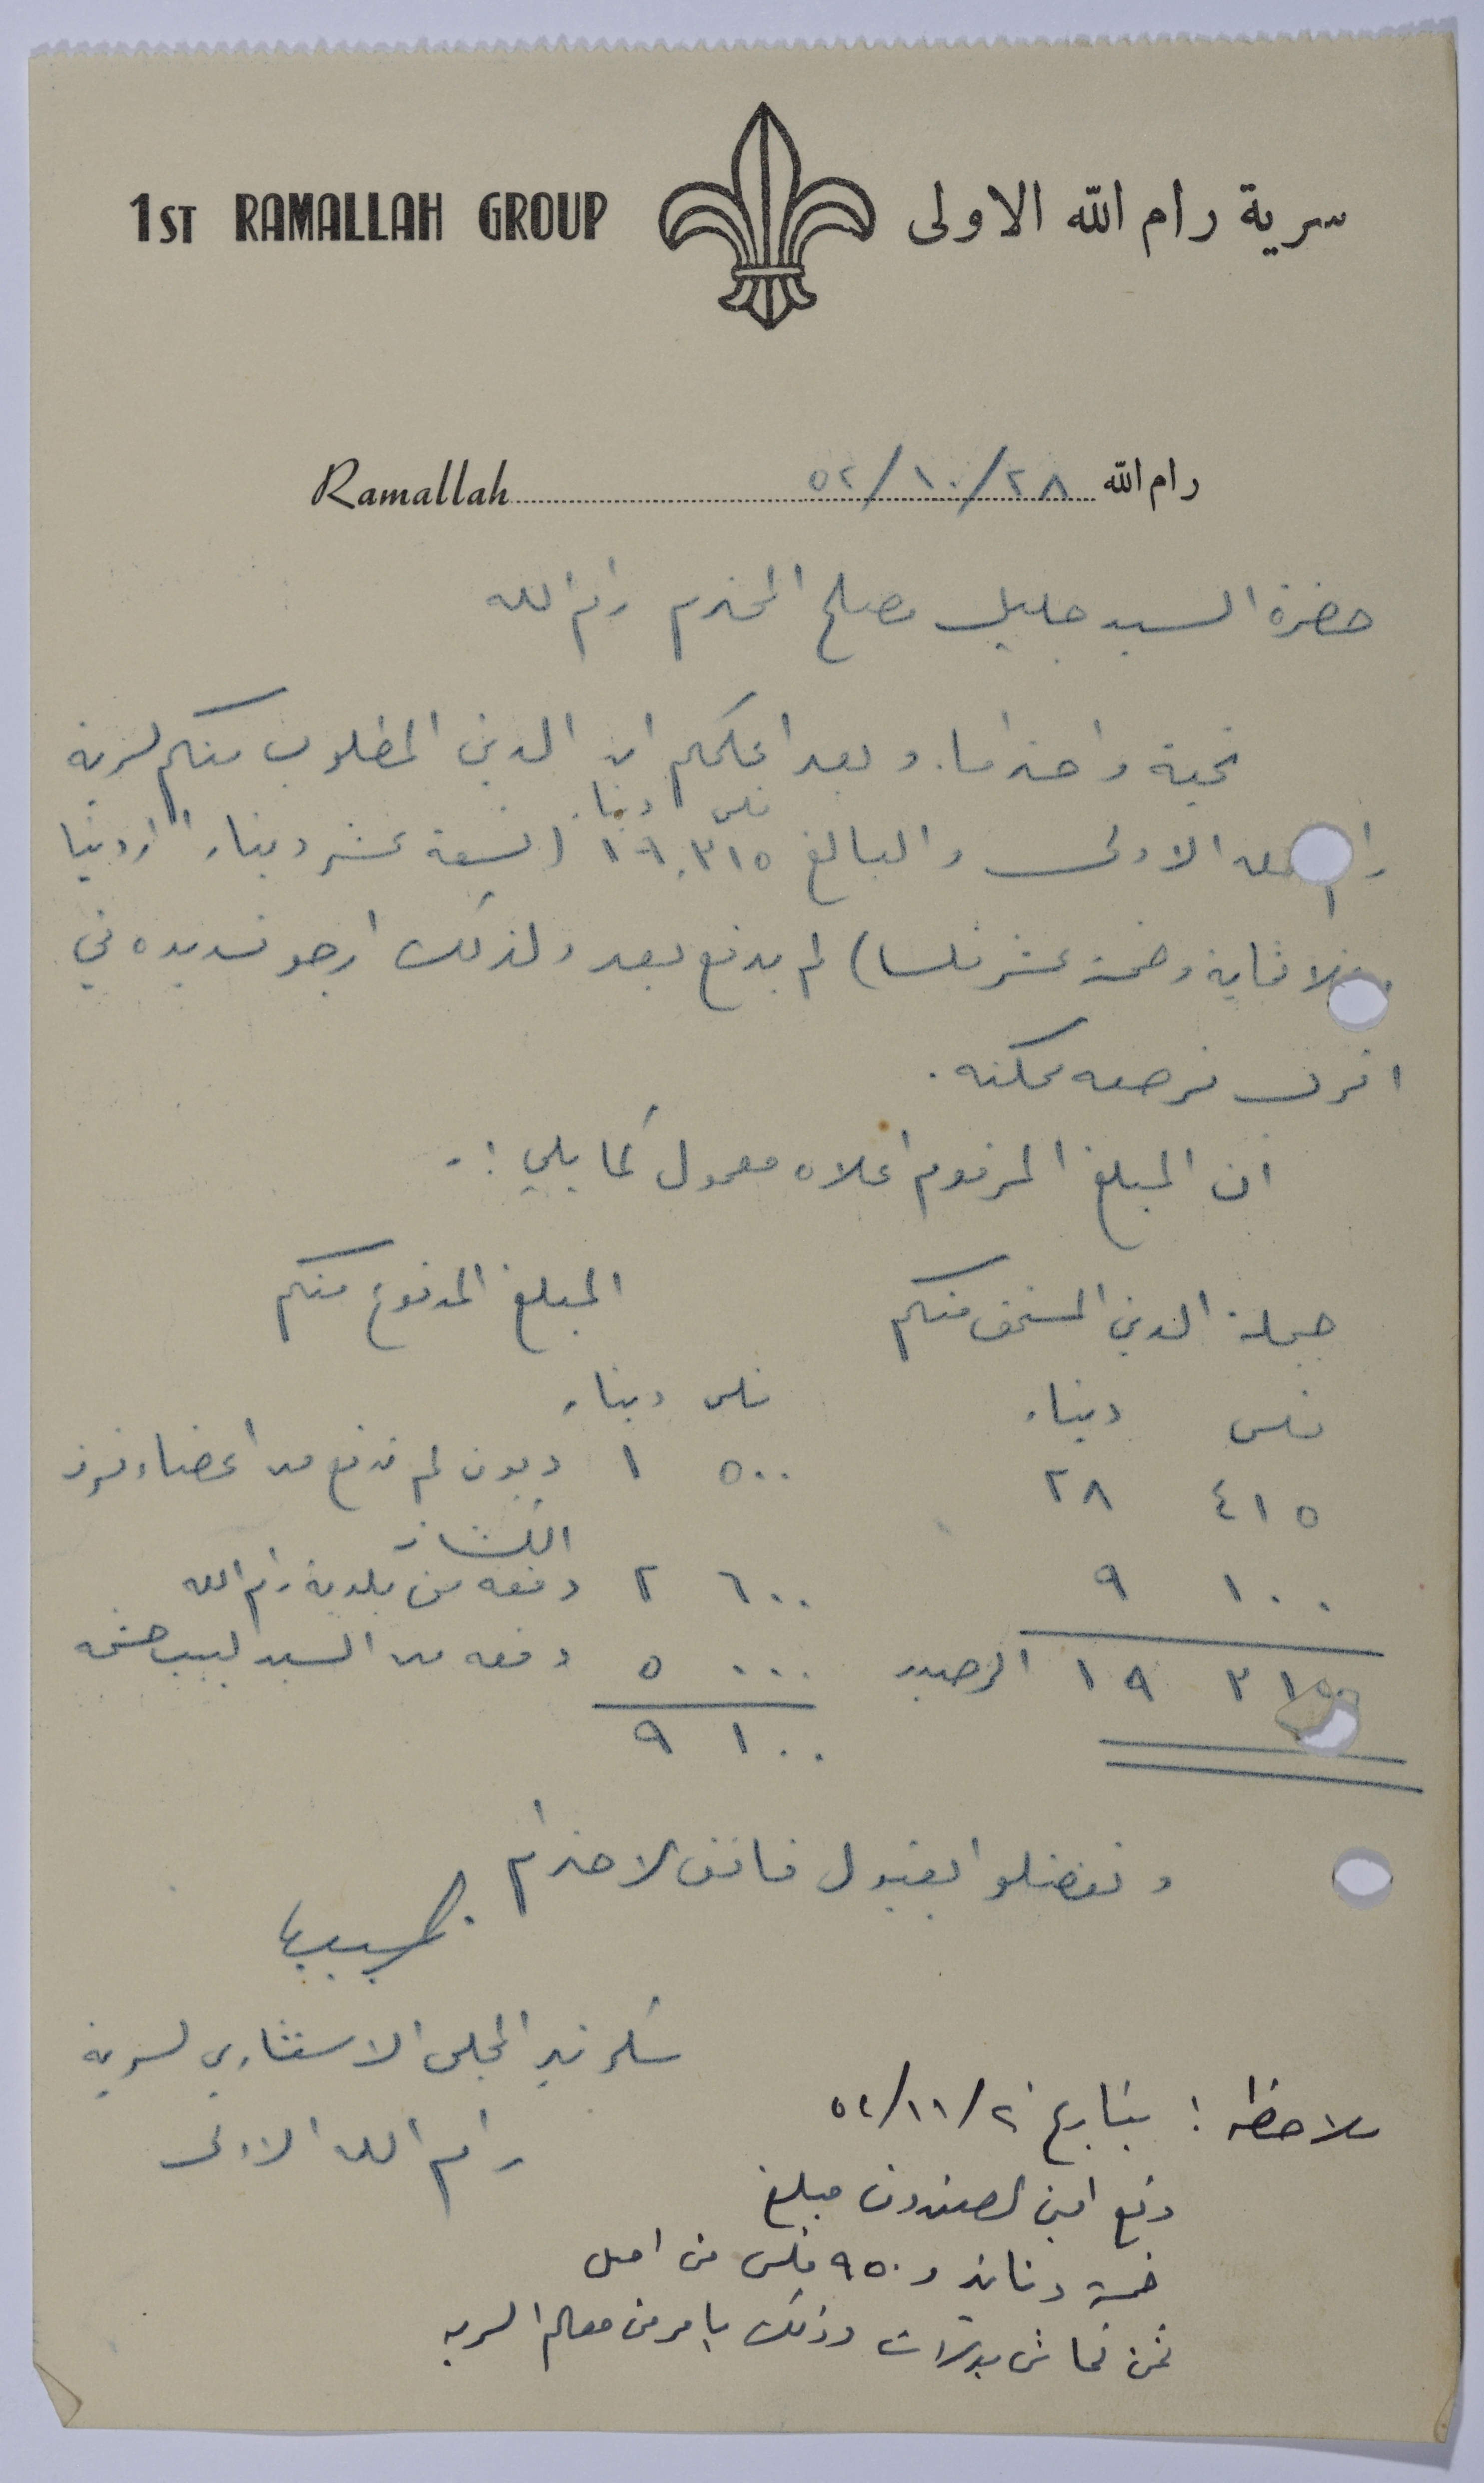 1ST RAMALLAH GROUP سرية رام الله الاولى
Ramallah رام الله ٥٢/١٠/٢٨
حضرة السيد جليل مصلح المحترم رام الله
تحية واحتراما. وبعد اعلمكم ان الدين المطلوب منكم لسرية
فلس دينار
رام الله الاولى والبالغ ١٩,٣١٥ (تسعة عشر دينارا اردنيا
وثلاثماية وخمسة عشر فلسا) لم يدفع بعد ولذلك ارجو تسديده في
اقرب فرصه ممكنه.
ان المبلغ المرقوم اعلاه معمول كما يلي :-
جملة الدين المستحق منكم المبلغ المدفوع منكم
فلس دينار فلس دينار
٤١٥ ٢٨ ٥٠٠ ١ ديون لم تدفع من اعضاء فرقة
الكشافة
١٠٠ ٩ ٦٠٠ ٢ دفعه من بلدية رام الله
٣١٥ ١٩ الرصيد ٠٠٠ ٥ دفعه من السيد لبيب حشمه
١٠٠ ٩
وتفضلوا بقبول فائق الاحترام
سكرتير المجلس الاستشاري لسرية
رام الله الاولى
ملاحظه : بتاريخ ٥٢/١١/٢
دفع امين الصندوق مبلغ
خمسة دنانير و ٩٥٠ فلس من اصل
ثمن قماش بدلات وذلك بامر من معلم السريه